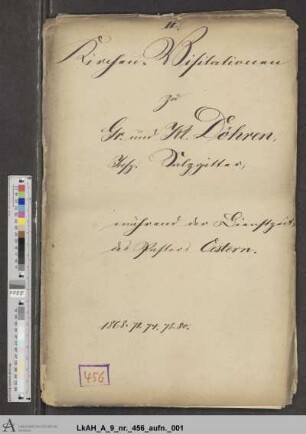 II.
Kirchen-Visitationen
zu
Gr. und Kl. Döhren,
Insp. Salzgitter,
während der Dienstzeit
des Pastors
456
LkAH_A_9_nr._456_aufn._001